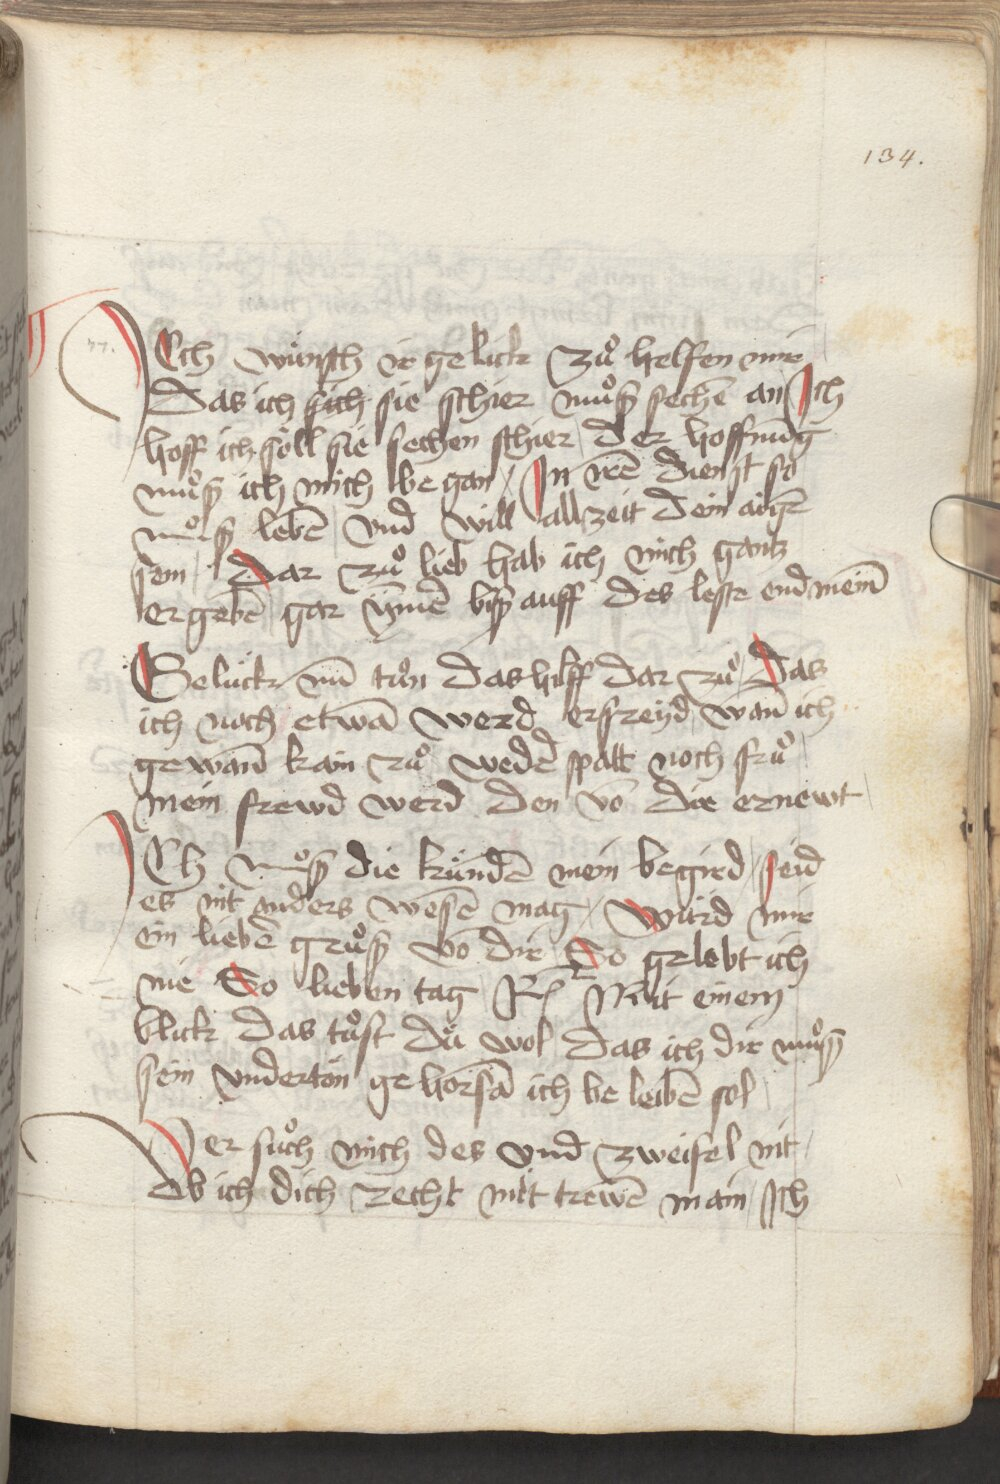 134.
77.
Ich wünsch ir gelück zuͦ helfen mir
Das ich sich sie schier muͦß sechē an Ich
hoff ich söll sie sechen schier / der hoffnūg
muͦß ich mich be gan / In irē dienst so
muͦß lebē / vnd will allzeit dein aigē
sein / Dar zuͦ lieb hab ich mich gantz
ergebē / gar ym̄ē biß auff des leste end mein
Gelück nū tuͦn das hilff dar zuͦ / Das
ich noch etwā werd erfreyd / wan̄ ich
gewan̄ kain ruͦ weder spatt noch fruͦ /
mein frewd werd den vō dir ernewt /
Ich muͦß dir kündē mein begird / seid
es nit anders wesē mag / Würd mir
ein liebē gruͦß vō dir / So gelebt ich
nie So lieben tag / Rͤ Mit einem
blick das tuͦst dü wol / das ich dir muͦß
sein vnderton gehorsā ich be leibē sol /
Versuͦch mich des vnd zweifel nit /
Ob ich dich recht mit trewē main / Ich